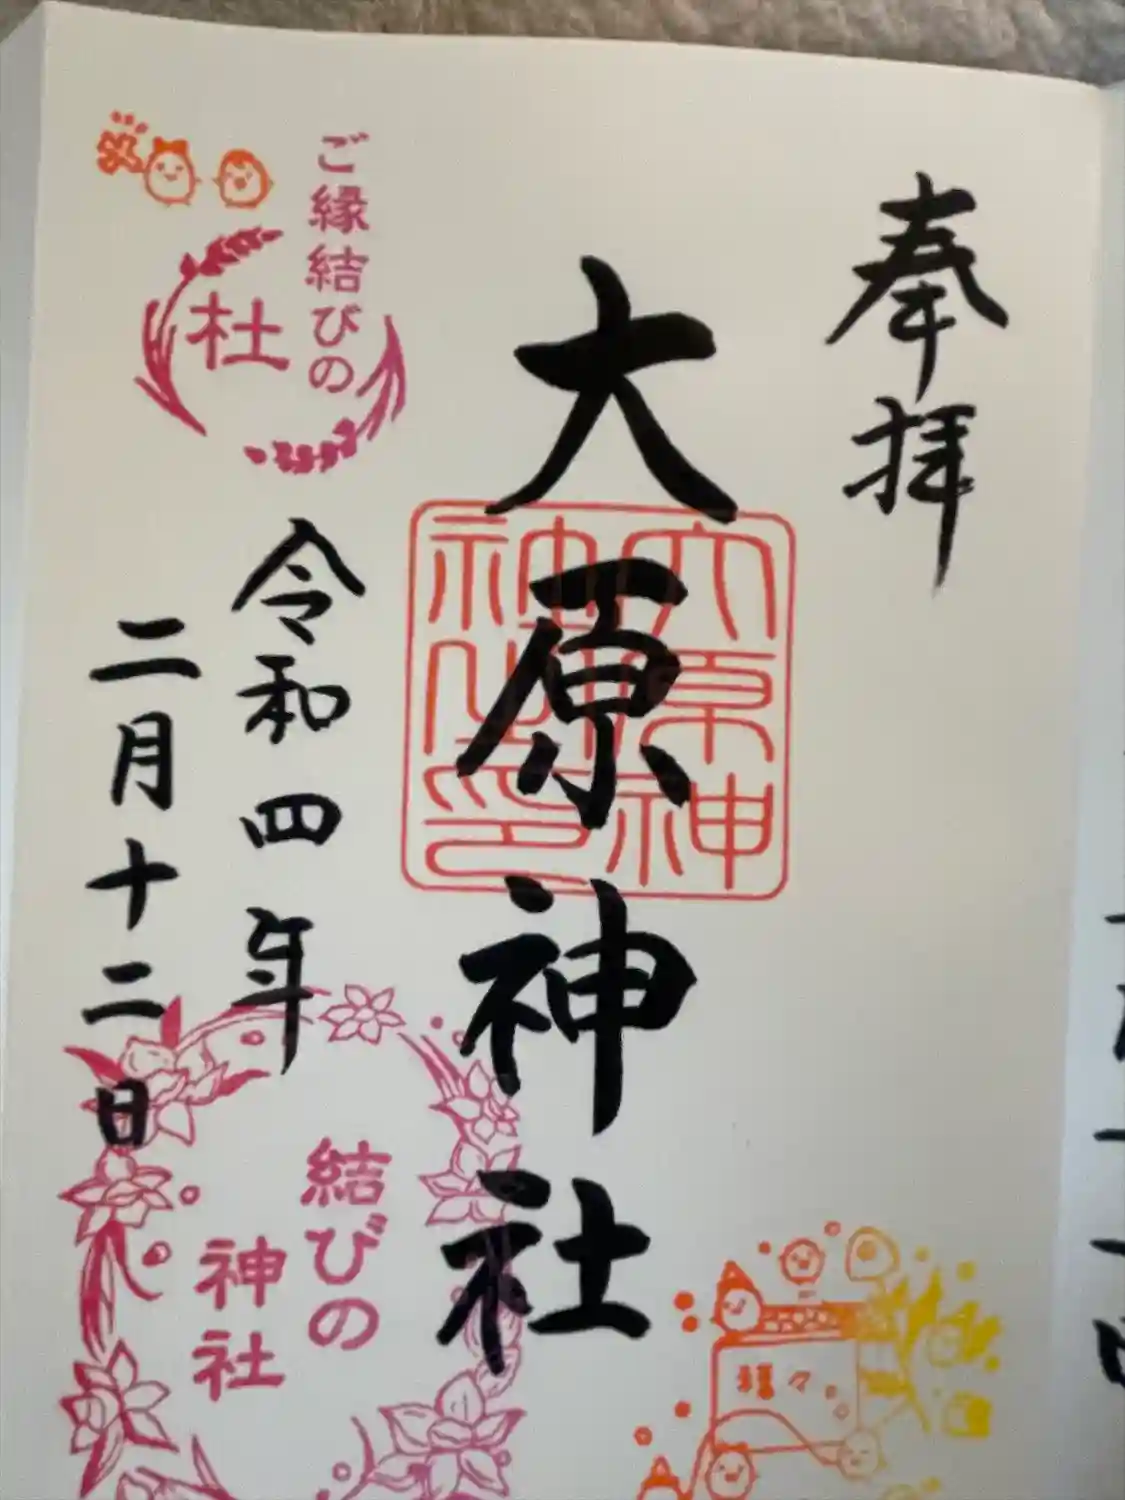 奉拝
大原神社
大原神
神社印
ご縁結びの
杜
令和四年
二月十二日
結びの
神社
様々